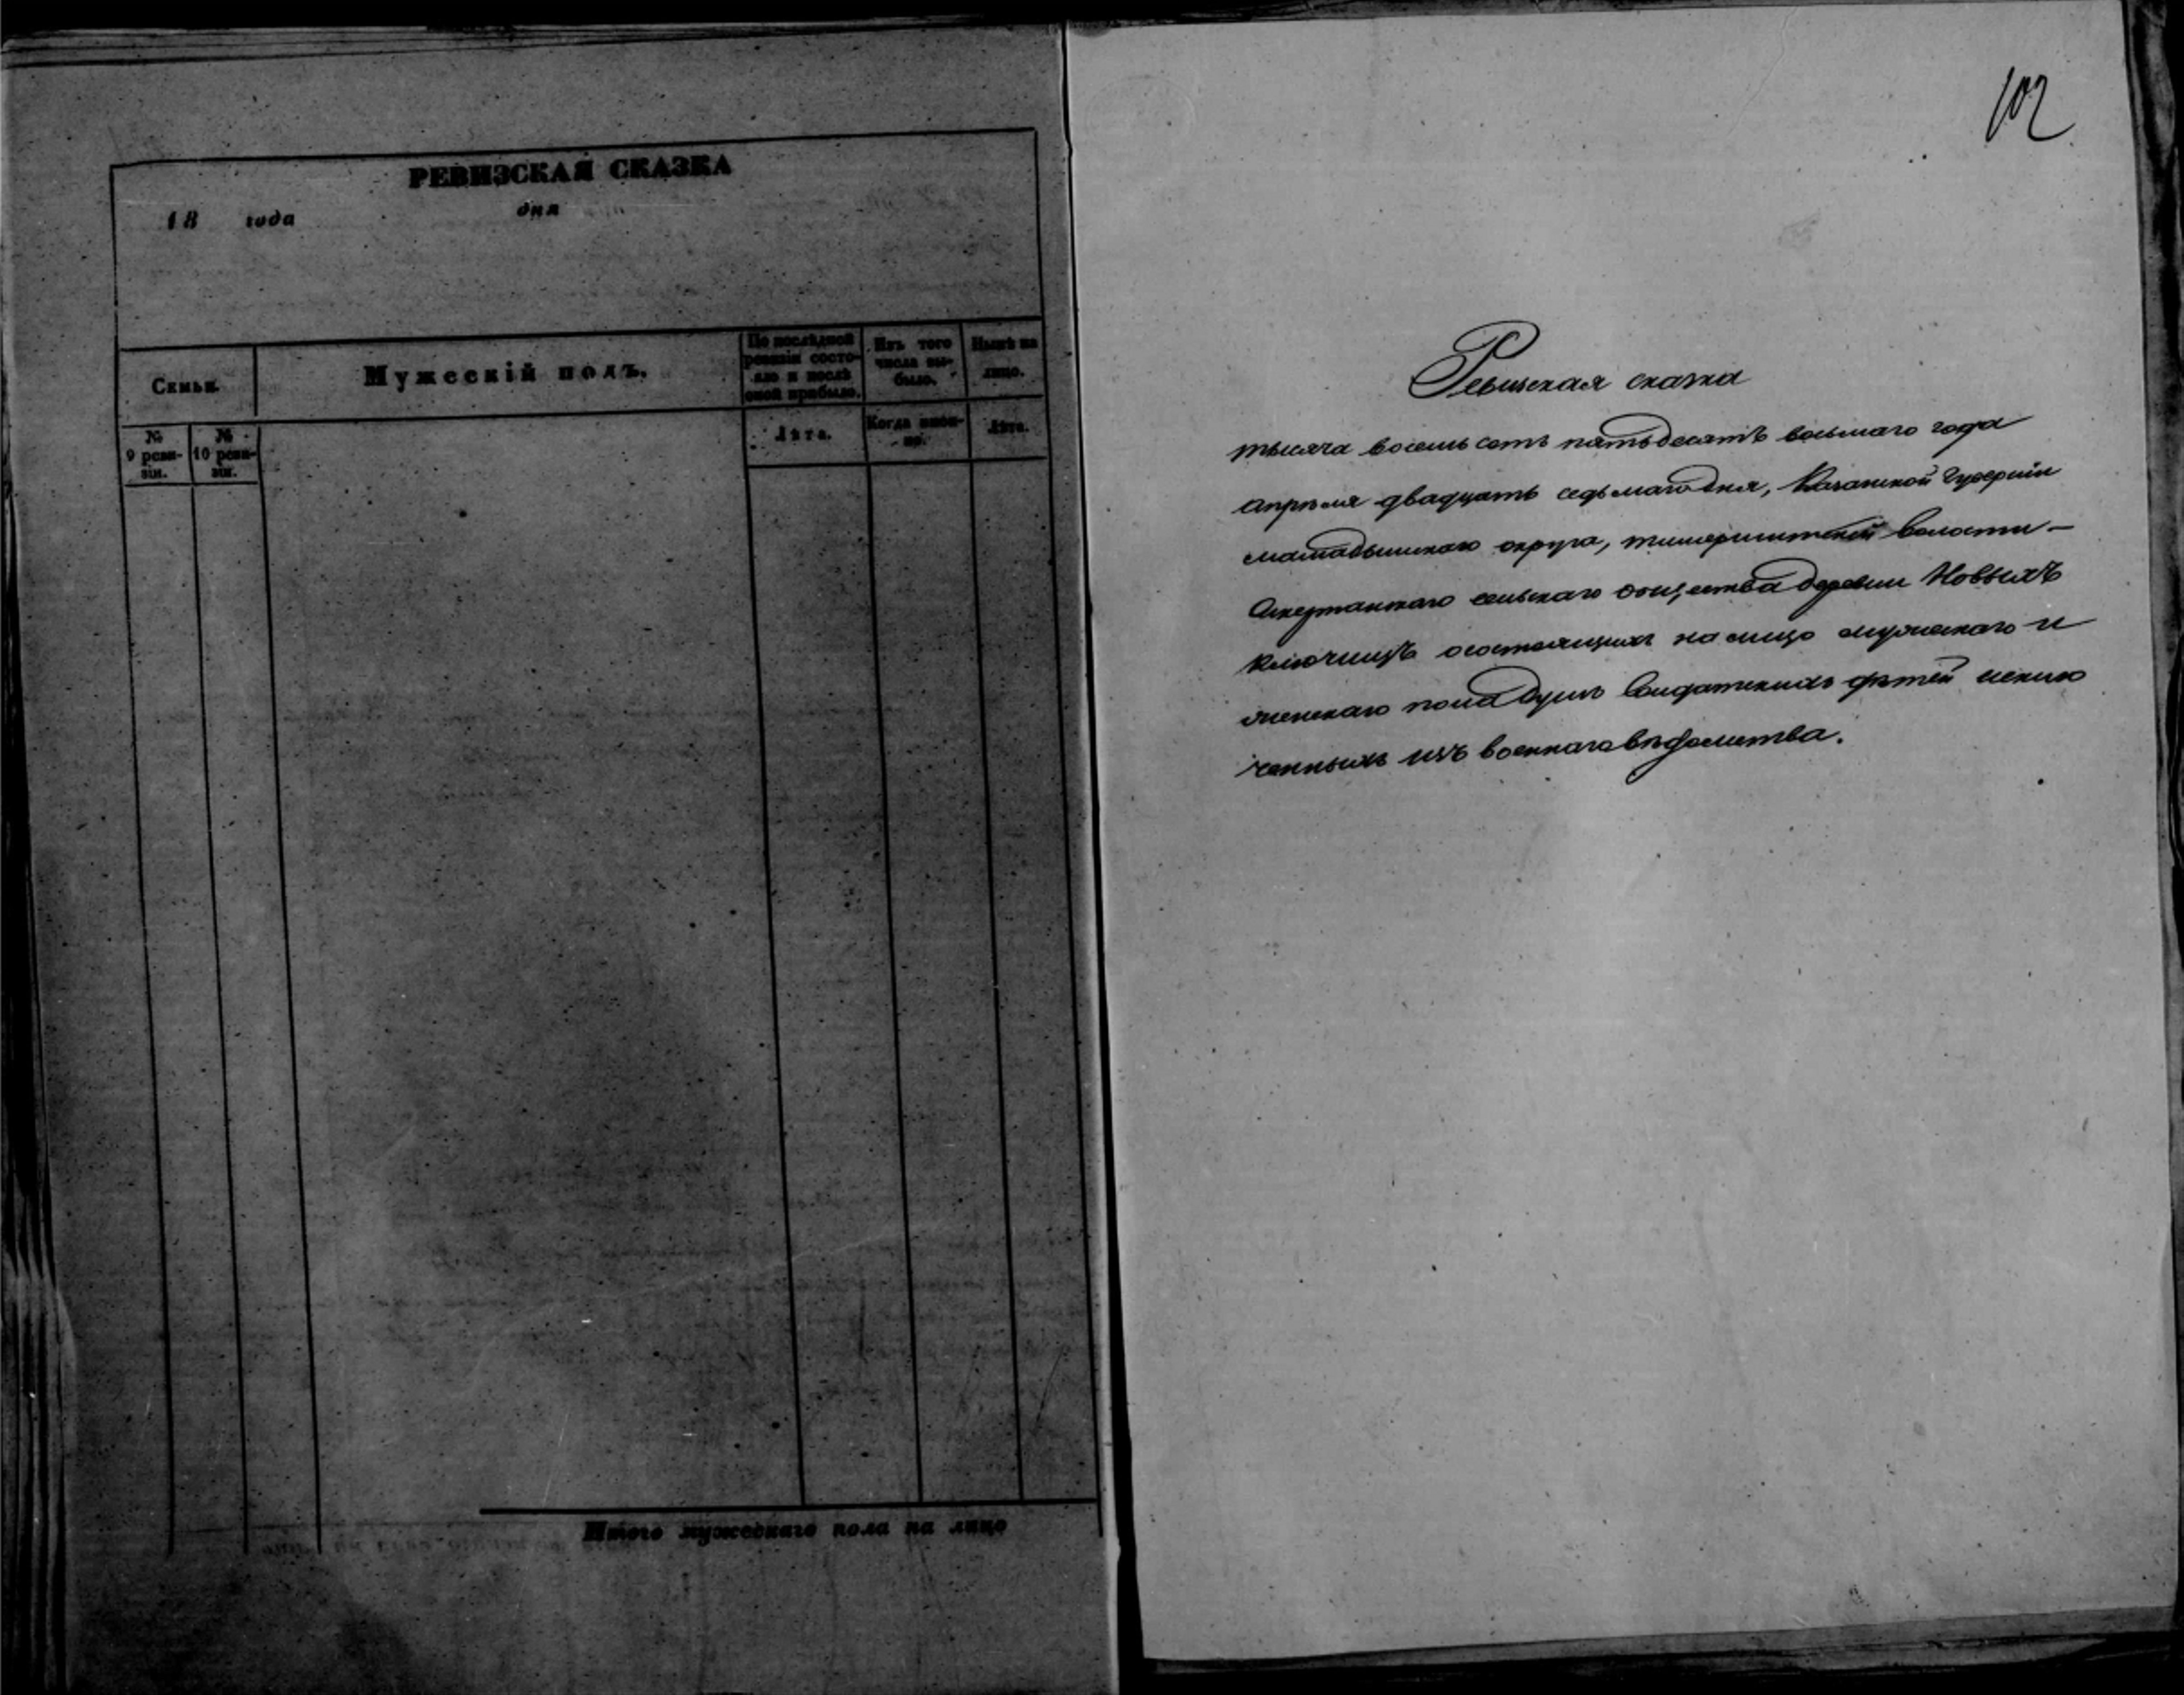 РЕВИЗСКАЯ СКАЗКА
18 года дня
Семьи.
Мужескій полъ.
По послѣдней ревизіи состояло и послѣ оной прибыло.
Изъ того числа выбыло.
Нынѣ на лицо.
№ 9 ревизіи.
№ 10 ревизіи.
Лѣта.
Когда именно.
Лѣта.
Итого мужескаго пола на лицо
102
Ревизская сказка
тысяча восемь сотъ пятьдесятъ восьмаго года
апрѣля двадцать седьмаго дня, Казанской Губерніи
мамадышскаго округа, волости –
сельскаго общества деревни Новыхъ
ключищъ осостоящихъ на лицо мужескаго и
женскаго пола душъ солдатскихъ дѣтей исклю
ченныхъ изъ военнаго вѣдомства.